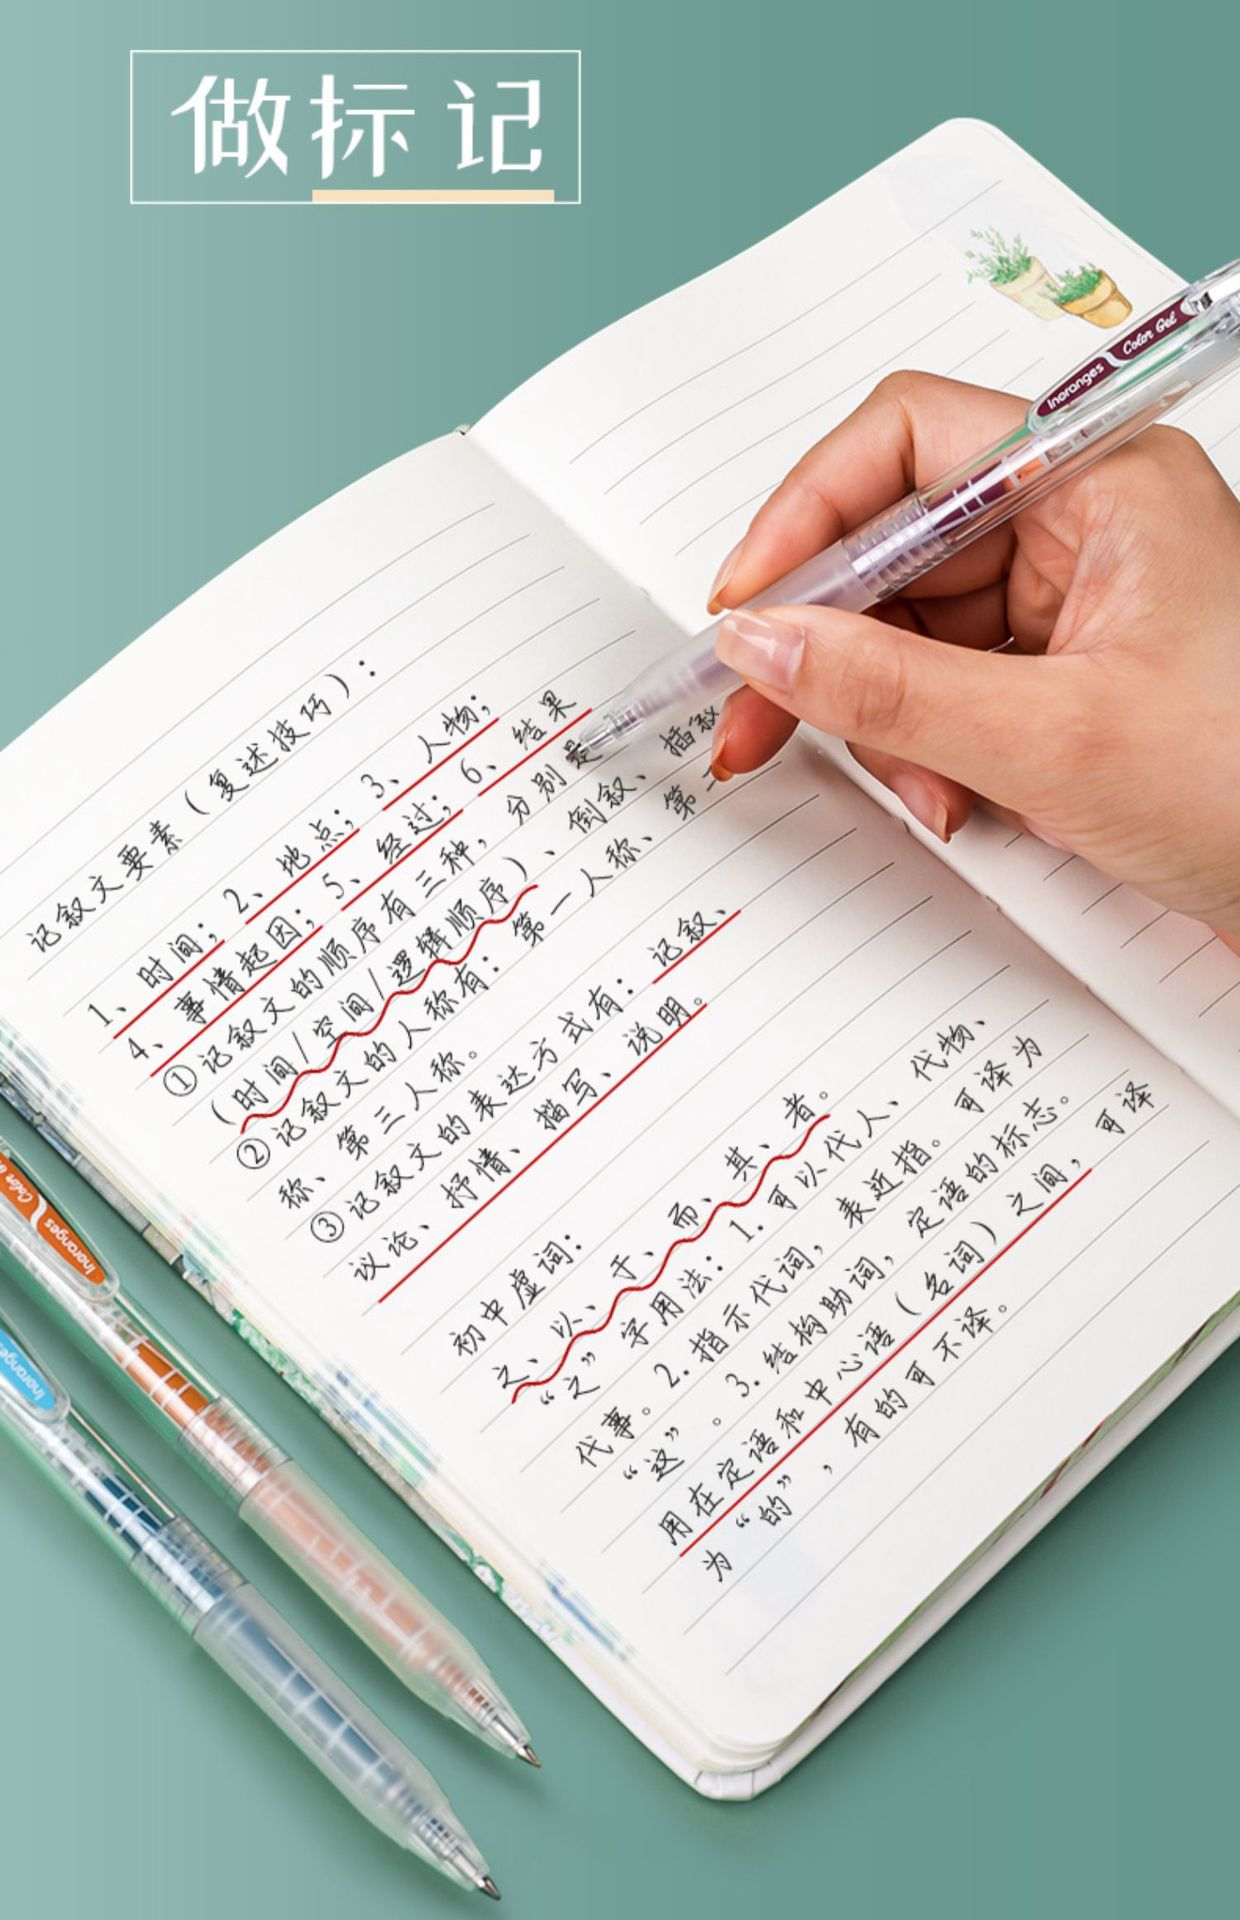 做标记
Inoranges Color Gel
记叙文要素（复述技巧）：
1、时间；2、地点；3、人物；
4、事情起因；5、经过；6、结果
①记叙文的顺序有三种，分别是
（时间/空间/逻辑顺序）、倒叙、插叙
②记叙文的人称有：第一人称、第二
称、第三人称。
③记叙文的表达方式有：记叙、
议论、抒情、描写、说明。
初中虚词：
之、以、于、而、其、者。
“之”字用法：1.可以代人、代物、
代事。2.指示代词，表近指。可译为
“这”。3.结构助词，定语的标志。
用在定语和中心语（名词）之间，可译
为“的”，有的可不译。
Inoranges Color
Inoranges